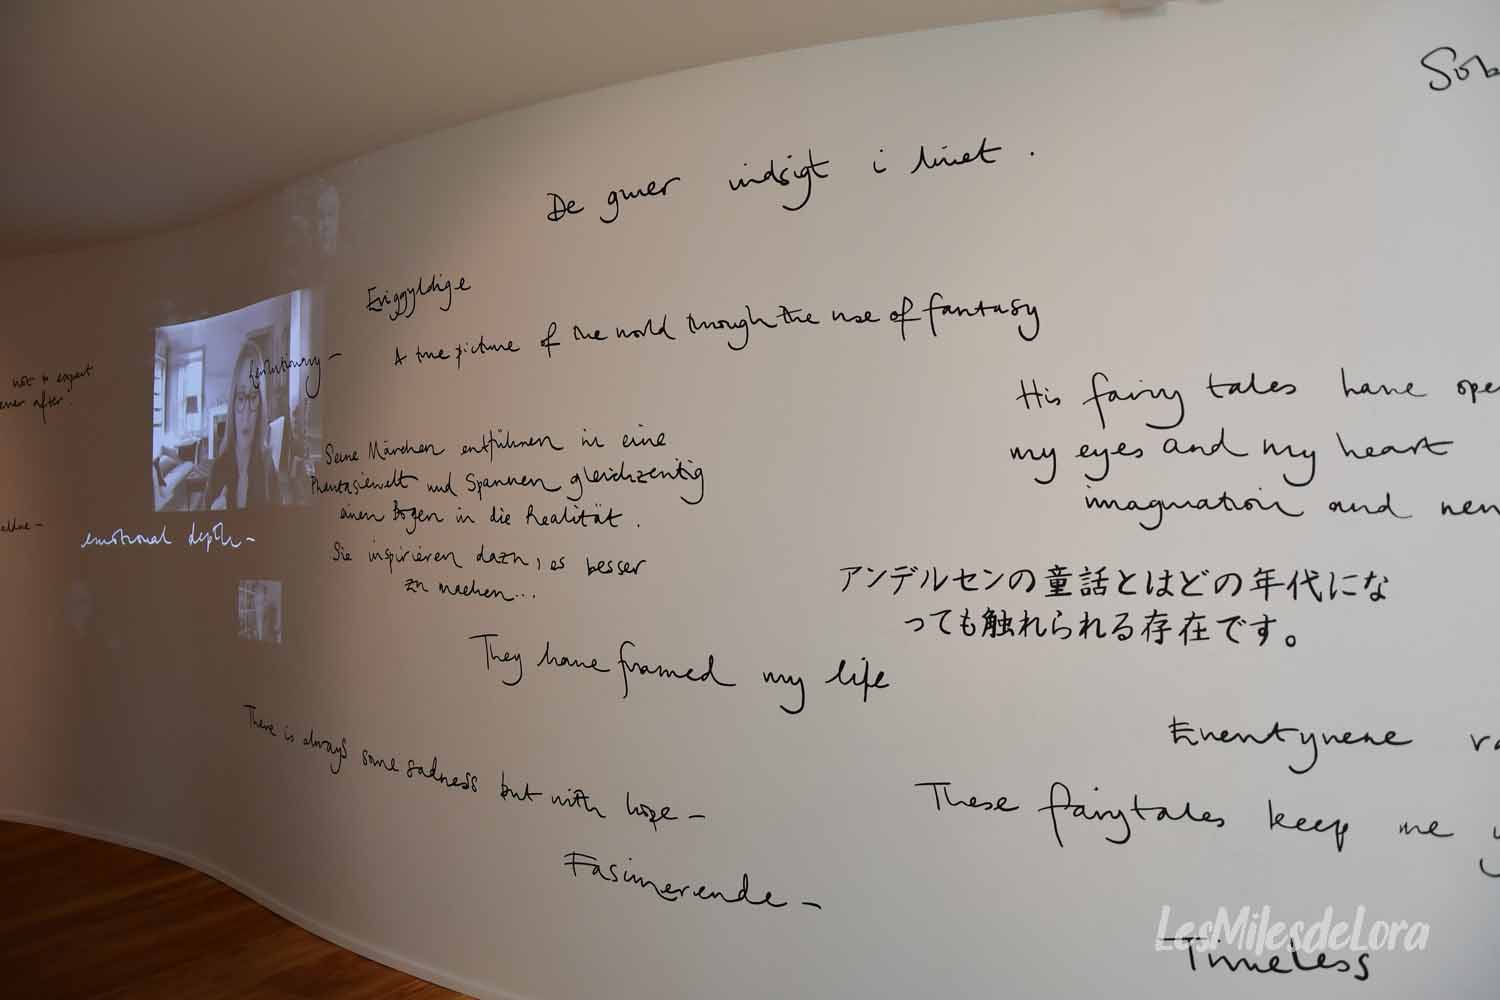 Sob
De giver indsigt i livet .
Eviggyldige
A true picture of the world through the use of fantasy
Revolutionary –
not to expect
ever after .
His fairy tales have ope
my eyes and my heart
imagination and
Seine Märchen entführen in eine
Phantasiewelt und Spannen gleichzeitig
einen Bogen in die Realität .
Sie inspirieren dazu, es besser
zu machen...
emotional depth –
アンデルセンの童話とはどの年代にな
っても触れられる存在です。
They have framed my life
There is always some sadness but with hope –
Eventyrene
These fairytales keep me y
Fasinerende –
Timeless
LesMilesdeLora